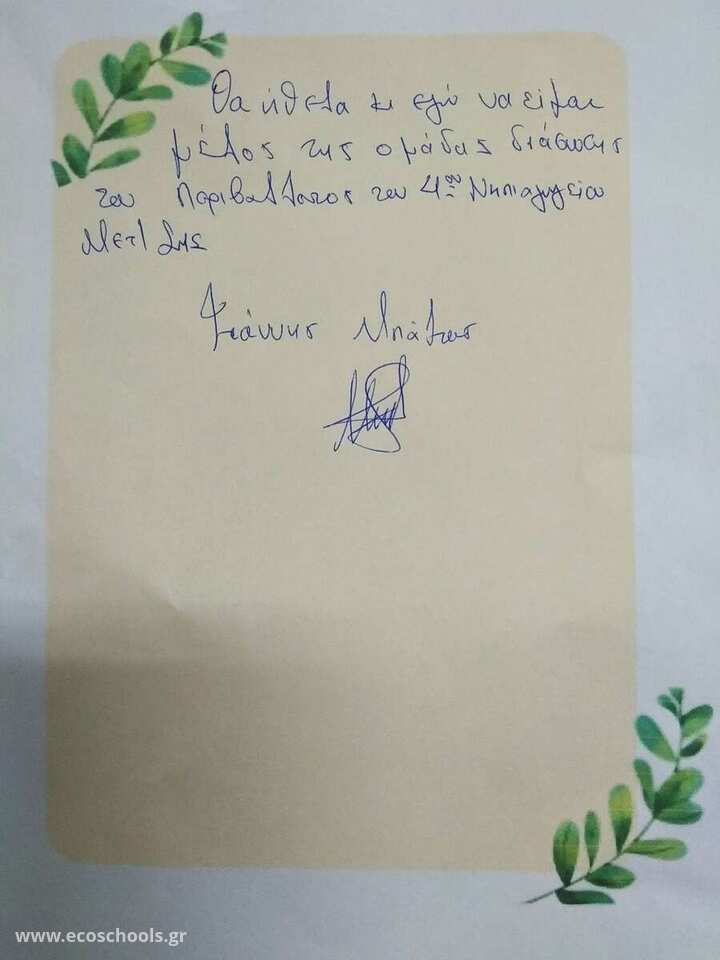 Θα ήθελα κι εγώ να είμαι
μέλος της ομάδας διάσωσης
του Περιβάλλοντος του 4ου Νηπιαγωγείου
Γιάννης Μπάτζιος
www.ecoschools.gr